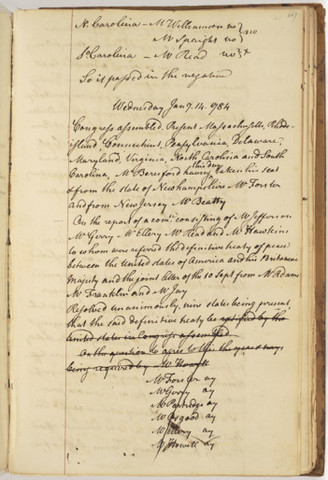 N. Carolina — Mr Williamson no } no
Mr Spaight no }
So Carolina — Mr Read no } x
So it passed in the negative
Wednesday Jany. 14. 1784
Congress assembled. Present Massachusetts, Rhode-
island, Connecticut, Pensylvania, Delaware,
Maryland, Virginia, North Carolina and South
Carolina, Mr Beresford having this day taken his seat
& from the state of Newhampshire Mr Foster
And from New Jersey Mr Beatty
On the report of a comee. consisting of Mr Jefferson
Mr Gerry Mr Ellery Mr Read and Mr Hawkins
to whom were referred the definitive treaty of peace
between the United states of America and his Britannic
Majesty and the joint letter of the 10 Sept from Mr Adams
Mr Franklin and Mr Jay
Resolved unanimously, nine states being present,
that the said definitive treaty be ratified by the
united states in Congress assembled
On the question to agree to this the yeas & nays
being required by Mr Howell
Mr Foster ay
Mr Gerry ay
Mr Partridge ay
Mr Osgood ay
Mr Ellery ay
Mr Howell ay